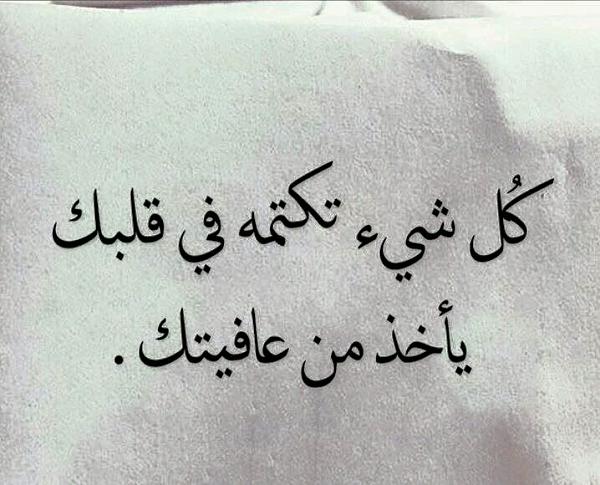 كُل شيء تكتمه في قلبك
يأخذ من عافيتك .